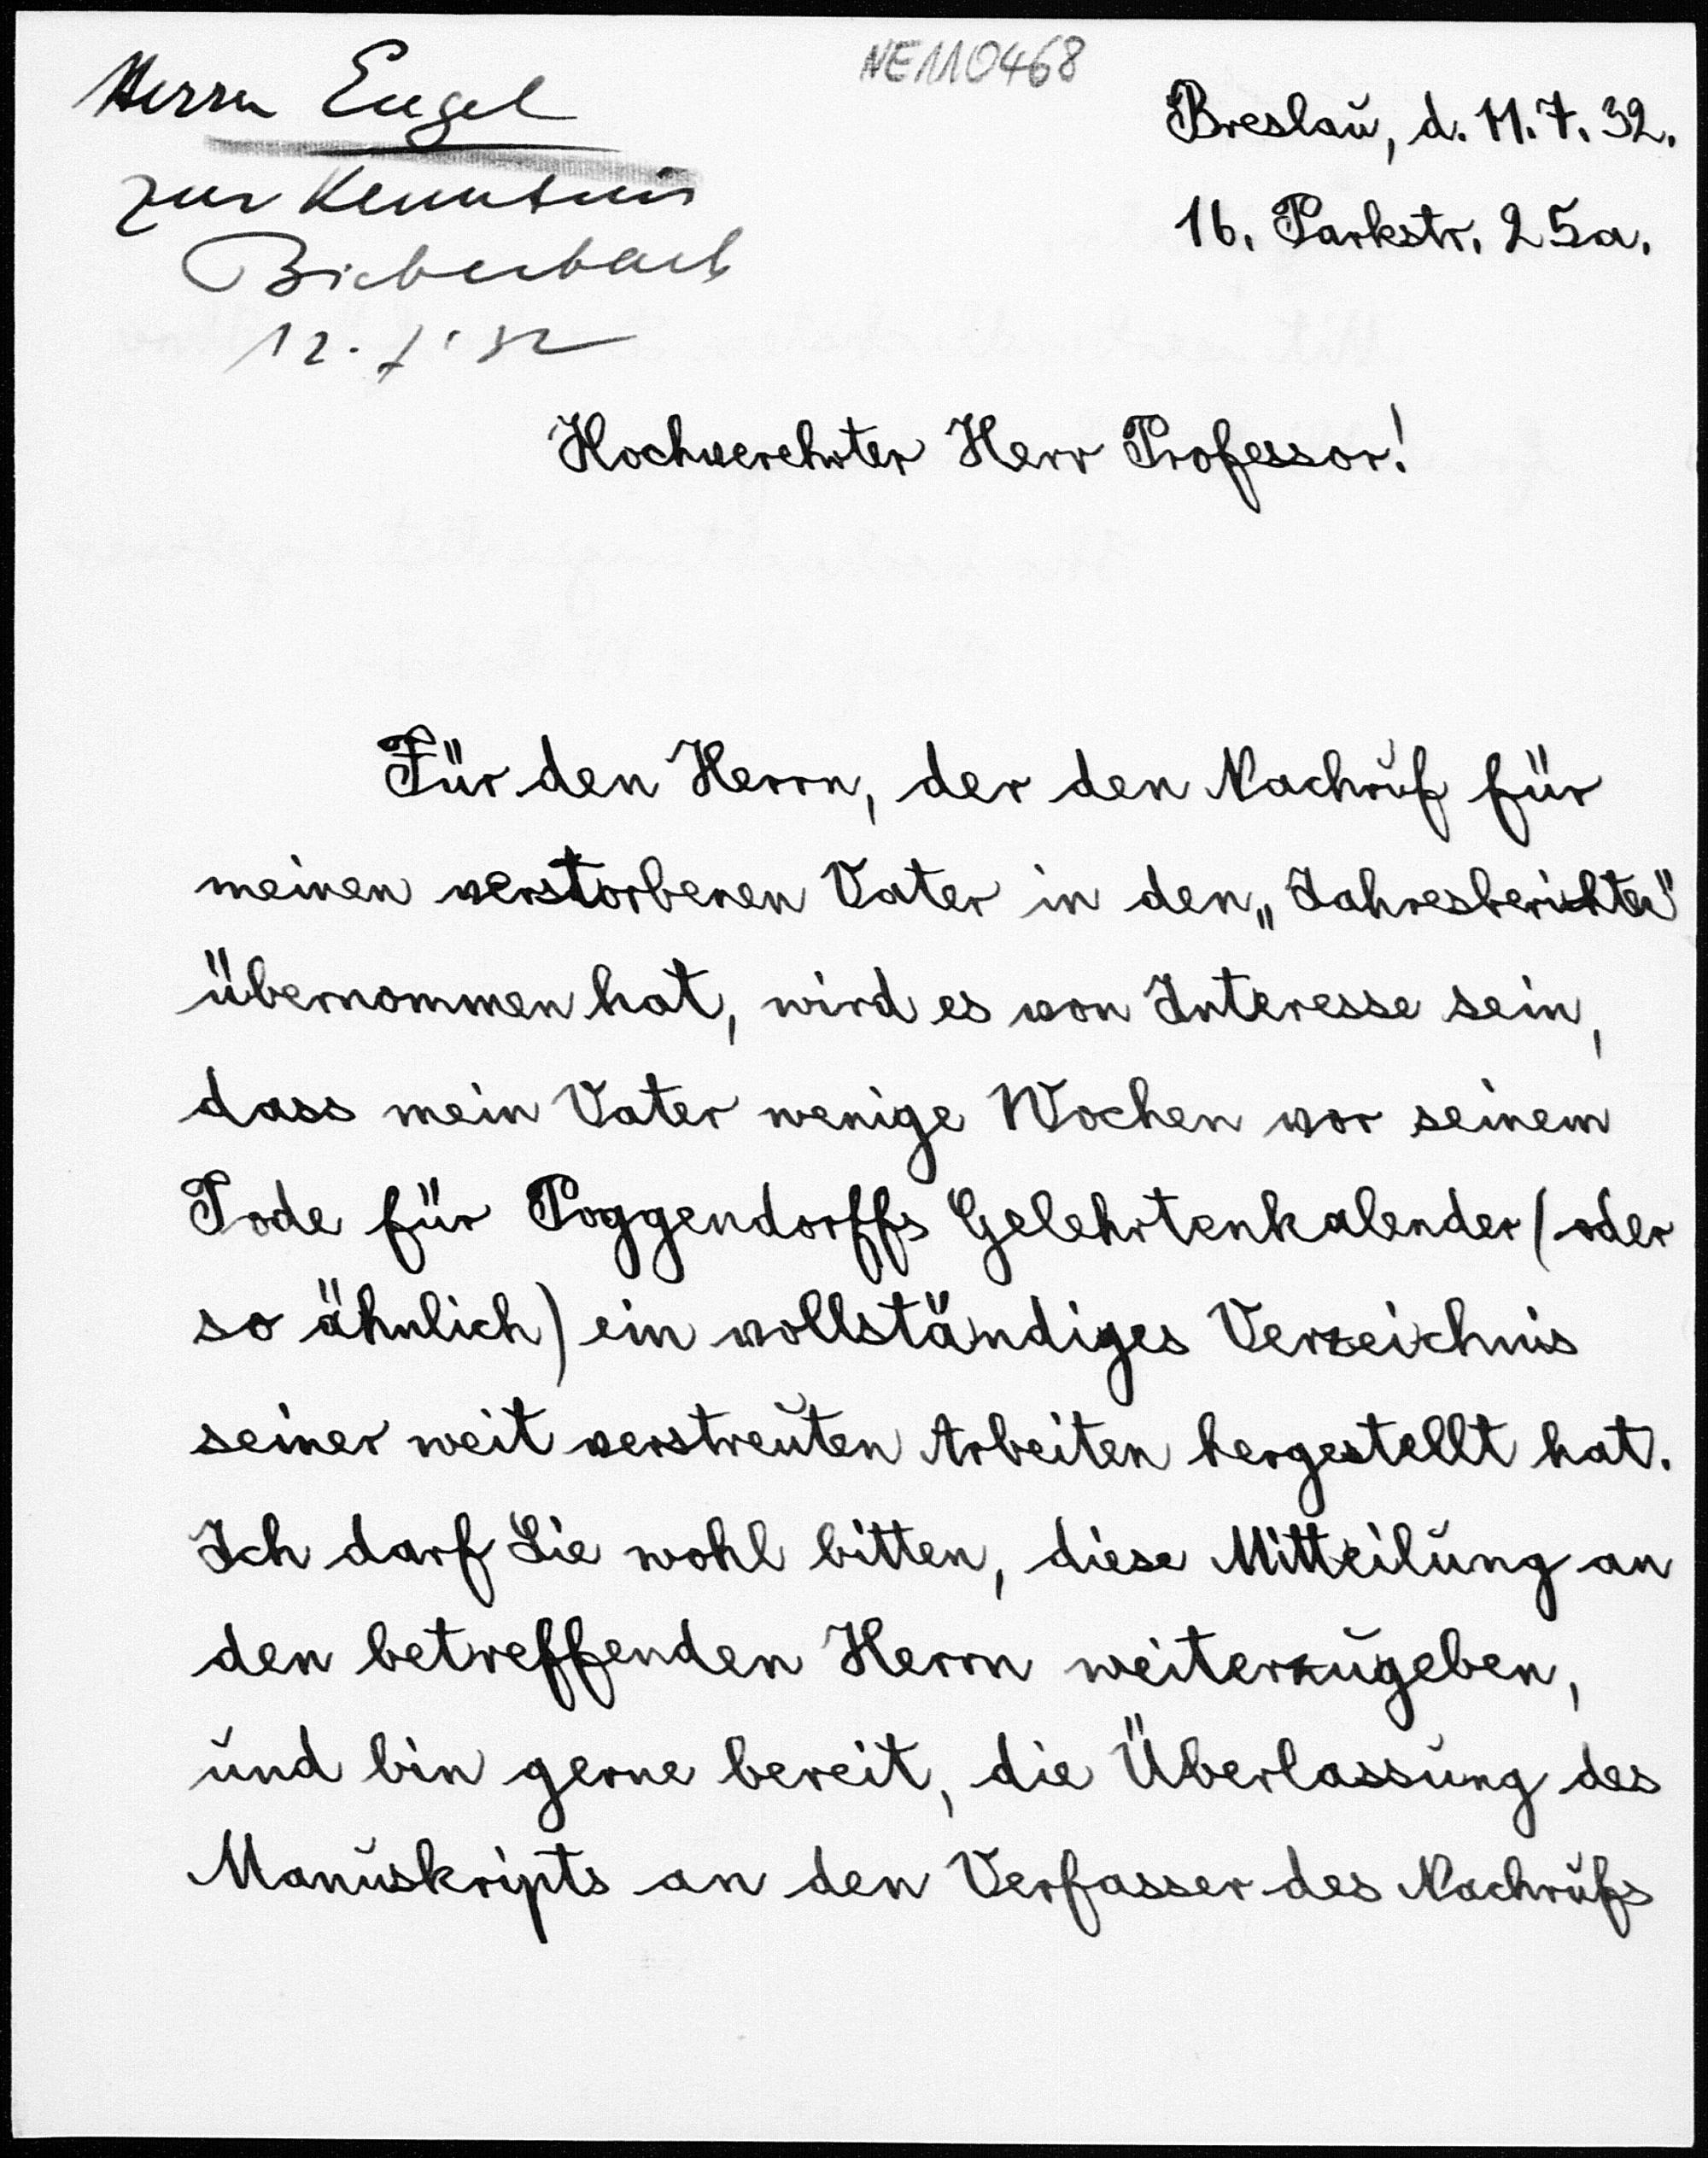 NE110468
Herrn Engel
zur Kenntnis
Bieberbach
12.7.32
Breslau, d. 11.7.32.
16, Parkstr. 25a.
Hochverehrter Herr Professor!
Für den Herrn, der den Nachruf für
meinen verstorbenen Vater in den „Jahresberichten"
übernommen hat, wird es von Interesse sein,
dass mein Vater wenige Wochen vor seinem
Tode für Poggendorffs Gelehrtenkalender (oder
so ähnlich) ein vollständiges Verzeichnis
seiner weit verstreuten Arbeiten hergestellt hat.
Ich darf Sie wohl bitten, diese Mitteilung an
den betreffenden Herrn weiterzugeben,
und bin gerne bereit, die Überlassung des
Manuskripts an den Verfasser des Nachrufs